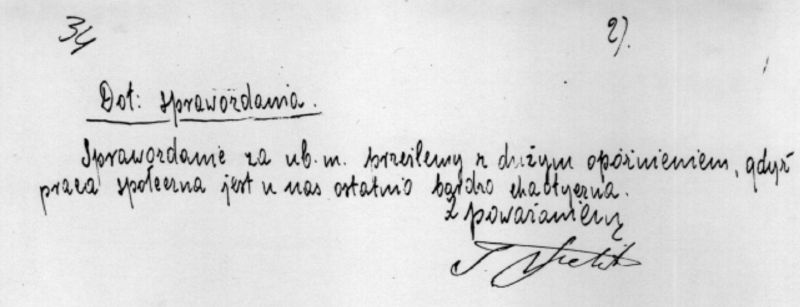 34 2).
Dot: sprawozdania.
Sprawozdanie za ub. m. prześlemy z dużym opóźnieniem, gdyż
praca społeczna jest u nas ostatnio bardzo chaotyczna.
Z poważaniem